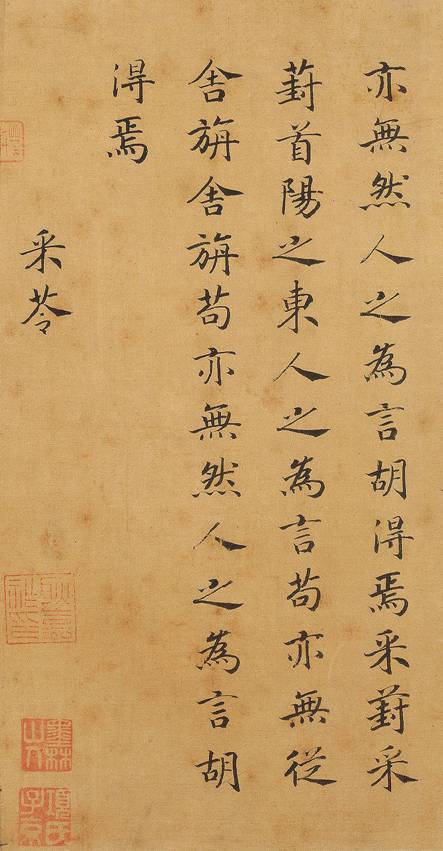 亦無然人之為言胡淂焉采葑采
葑首陽之東人之為言苟亦無從
舍旃舍旃苟亦無然人之為言胡
淂焉
采苓
項氏子京